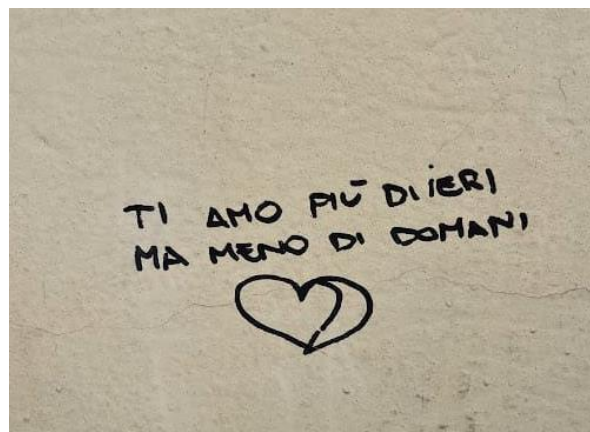 TI AMO PIÙ DI iERI
MA MENO DI DOMANI